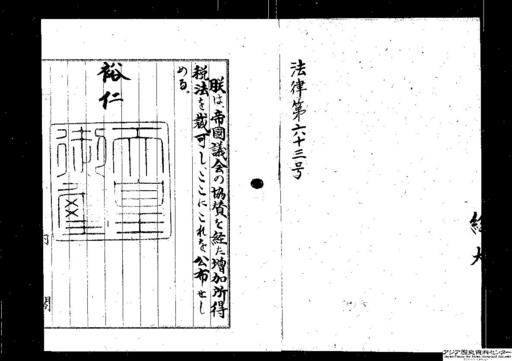 法律第六十三号
朕は、帝國議会の協賛を経た増加所得
税法を裁可し、ここにこれを公布せし
める。
裕仁
天皇
御璽
内閣
アジア歴史資料センター